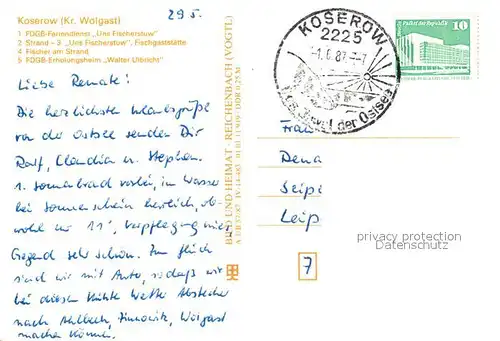 29 5.
Koserow (Kr. Wolgast)
1 FDGB-Feriendinner "Uns Fischerstuw"
2 Strand - 3 "Uns Fischerstow", Fischgaststätte
4 Fischer am Strand
5 FDGB-Erholungsheim "Walter Ulbricht"
Liebe Renate!
Die herzlichsten Urlaubsgrüße
von der Ostsee senden Dir
Ralf, Claudia u. Stephan.
1. Sonnenbrand vorbei, im Wasser
bei Sonnenschein herrlich, ob-
wohl nur 11°, Verpflegung
Gegend sehr schön. Zum Glück
sind wir mit Auto, sodaß wir
bei diesem kühlen Wetter Abstecher
nach Ahlbeck, Zinnowitz, Wolgast
machen können.
BILD UND HEIMAT · REICHENBACH (VOGTL)
KOSEROW
2225
-1.6.87
der Ostsee
Palast der Republik
10
Frau
Rena
Seipe
Leip
privacy protection
Datenschutz
7